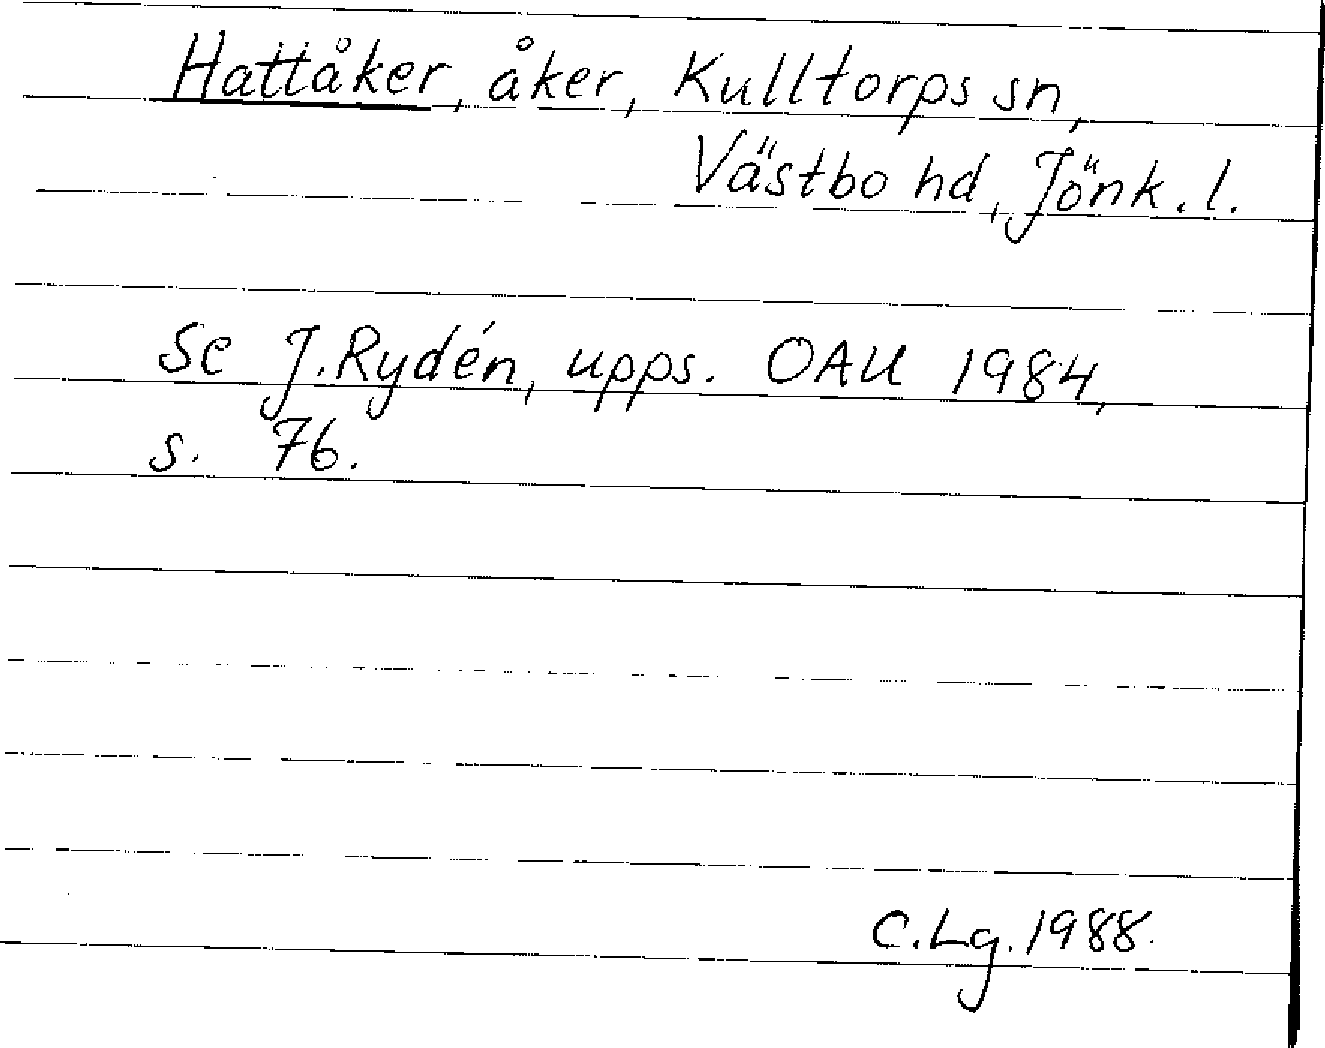 Hattåker, åker, Kulltorps sn,
Västbo hd, Jönk. l.
Se J. Rydén, upps. OAU 1984,
s. 76.
C. Lg. 1988.